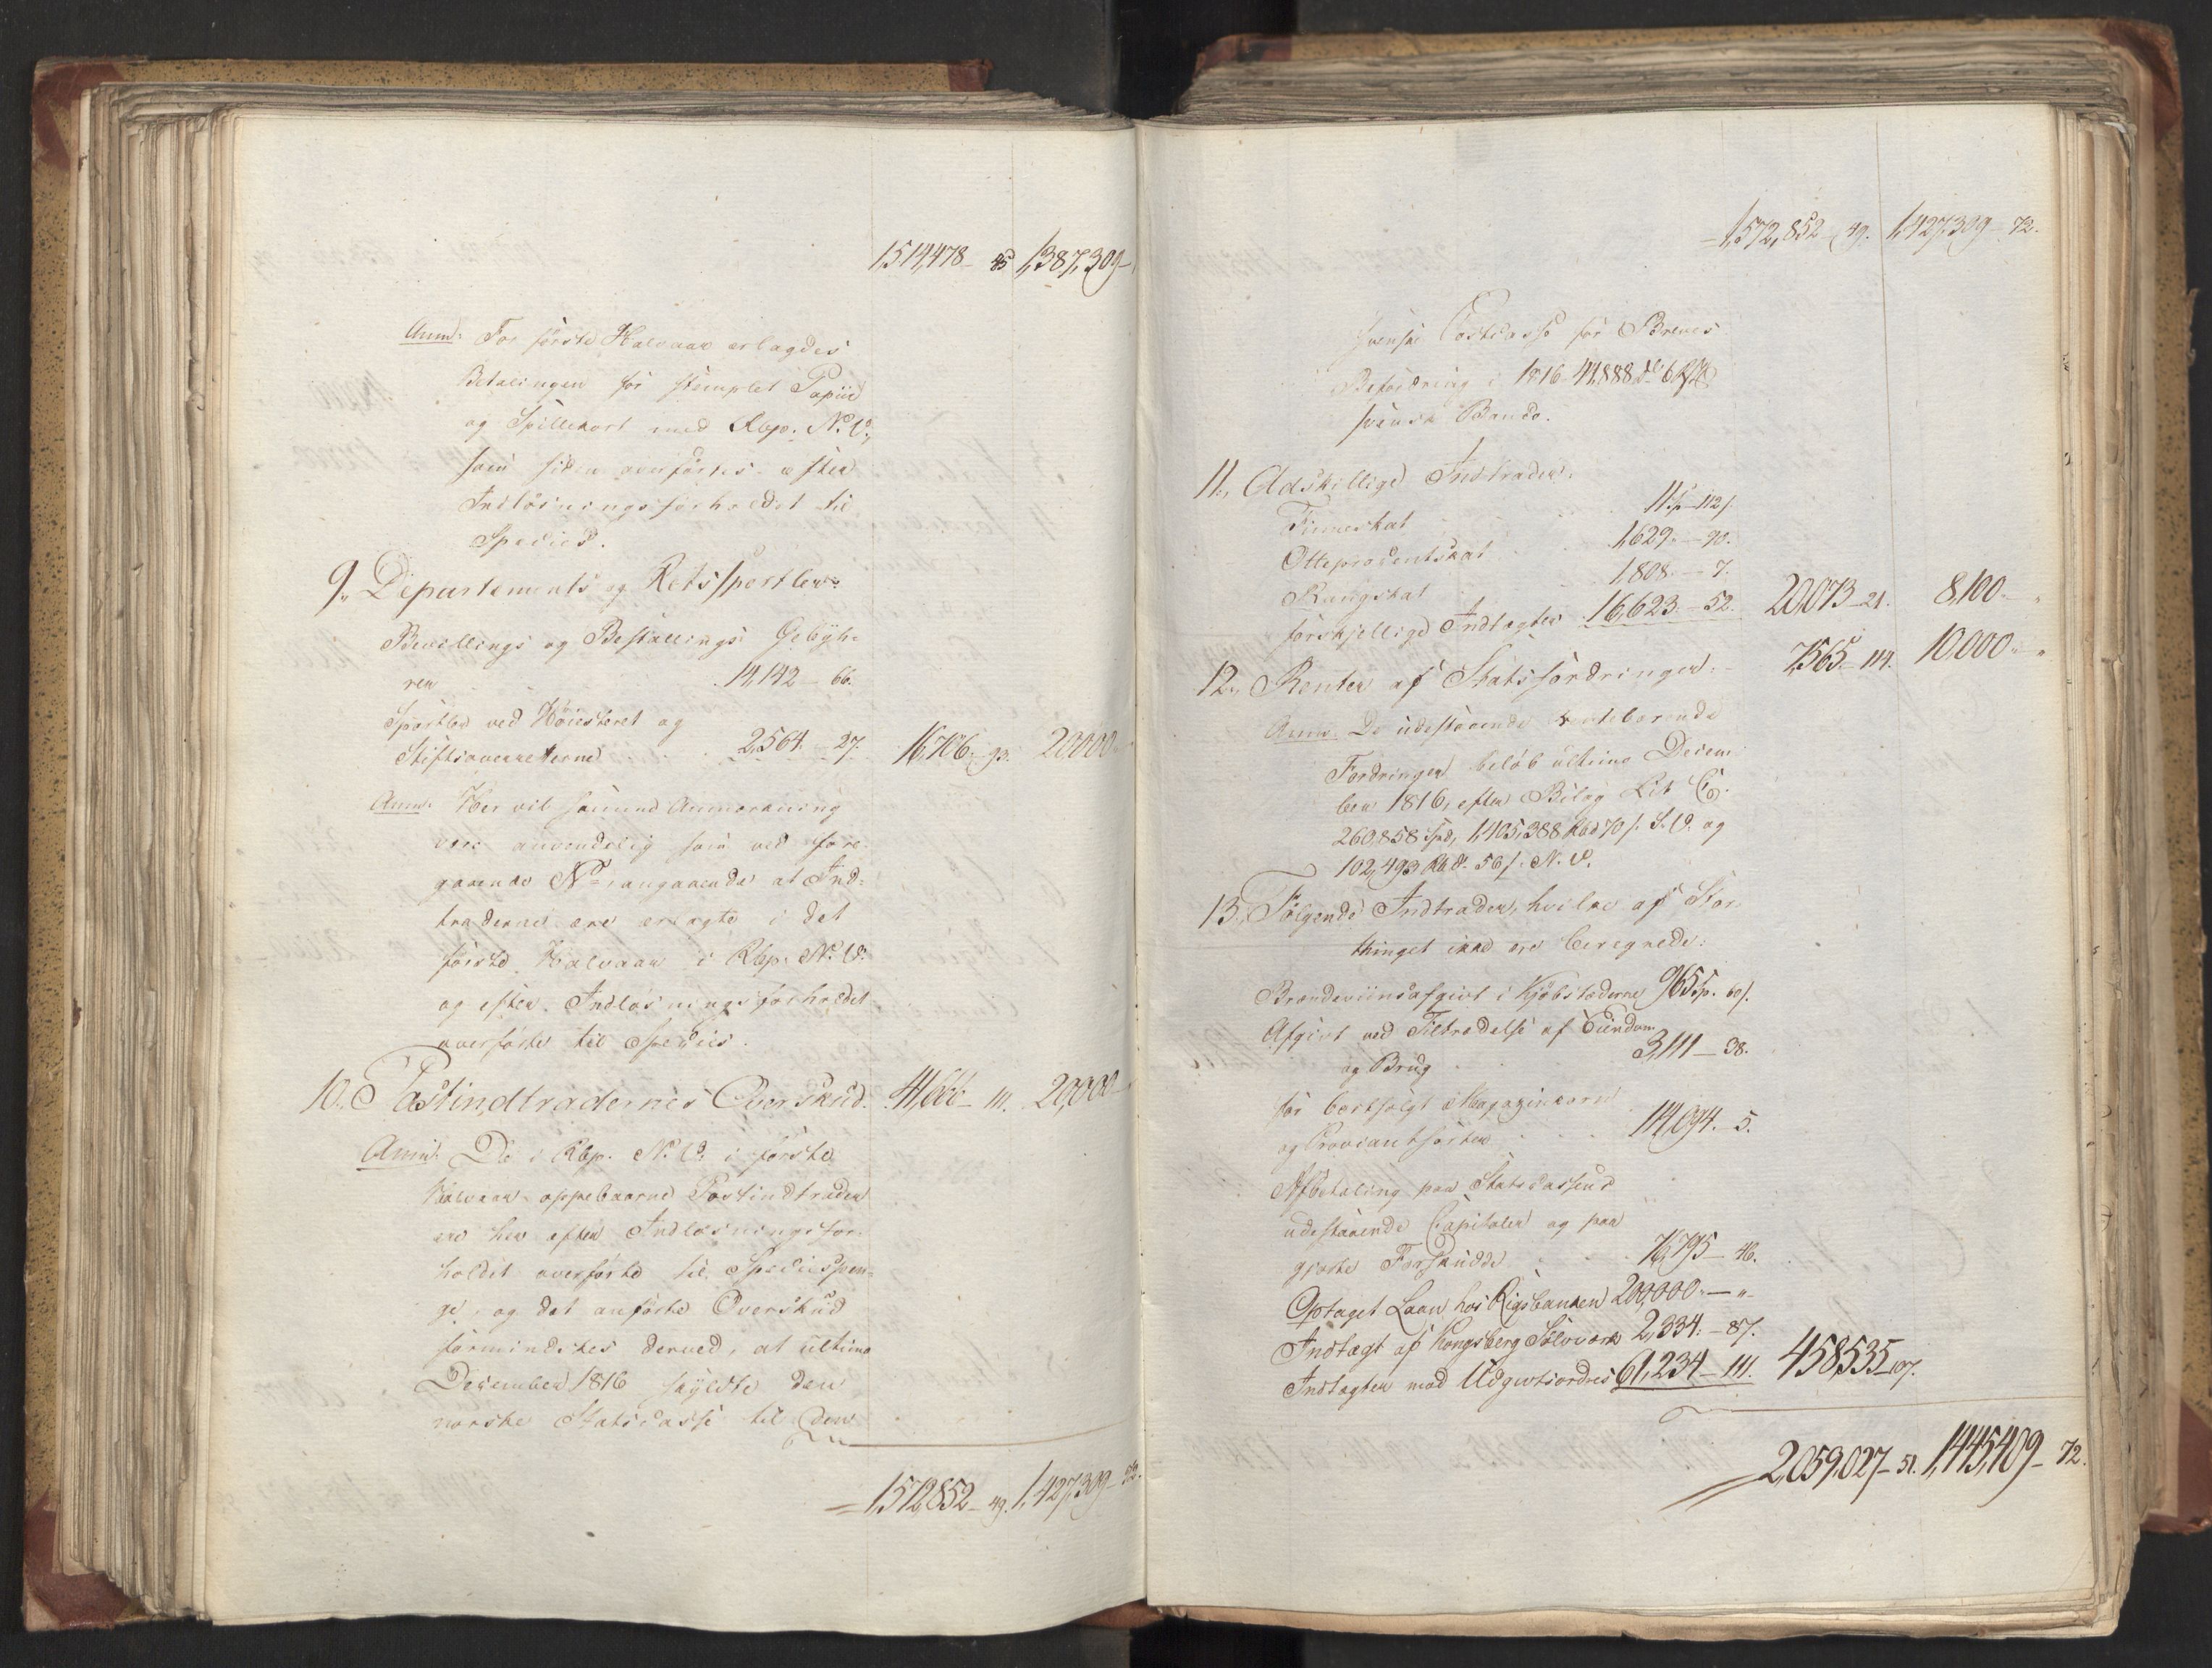 1,514,478 - 45 1,387,309 -
Anm: For første Halvaar erlagdes
Betalingen for stemplet Papiir
og Spillekort med Rbp. N. V.,
som siden overførtes efter
Indløsningsforholdet til
Species.
9., Departements og Retssportler:
Bevillings og Bestallings Gebyh-
rer . 14,142 - 66.
Sportler ved Høiesteret og
Stiftsoverretterne . . . 2,564. - 27. 16,706. - 93. 20,000
Anm: Her vil samme Anmærkning
være anvendelig som ved fore-
gaaende No, angaaende at Ind-
traderne ere erlagte i det
første Halvaar i Rbp. N. V.
og efter Indløsningsforholdet
overførte til Species.
10., Postindtradernes Overskud. 41,666 - 111. 20,000 -
Anm: De i Rbp. N. V. i første
Halvaar oppebaarne Postindtrader
ere her efter Indløsningsfor-
holdet overførte til Speciespen-
ge, og det anførte Overskud
formindskes derved, at ultimo
December 1816 skyldte den
norske Statscasse til den
= 1,572,852 - 49. 1,427,309 - 72.
= 1,572,852 - 49. 1,427,309 - 72.
svenske Postcasse for Breves
Befordring i 1816 41,888
svensk Banco.
11., Adskillige Indtrader.
Tiineskat 11 Sp - 112 s.
Otteprocentskat . . . 1,629. - 90.
Rangskat . . . 1,808. - 7.
forskjellige Indtægter 16,623. - 52. 20,073 - 21. 8,100. - "
12., Renter af Statsfordringer. - 7,565. - 114. 10,000. - "
Anm. De udestaaende rentebærende
Fordringer beløb ultimo Decem-
ber 1816, efter Bilag Lit. C,
260,858 Spd, 1,405,388 Rbd 70 s. S. V. og
102,493 Rbd. 56 s. N. V.
13., Følgende Indtrader, hvilke af Stor-
thinget ikke ere beregnede:
Brændeviinsafgivt i Kjøbstæderne 965 Sp. 60 s.
Afgivt ved Tiltrædelse af Eiendom
og Brug . 3,111 - 38.
for bortsolgt Magazinkorn
og Proviantsorter . . . 114,094. - 5.
Afbetaling paa Statscassens
udestaaende Capitaler og paa
gjorte Forskudde . . . 76,795 - 46.
Optaget Laan hos Rigsbanken 200,000. - "
Indtægt af Kongsberg Sølvværk 2,334. - 87.
Indtægter mod Udgivtsordres 61,234 - 111. 458,535 - 107.
= 2,059,027 - 51. 1,445,409 - 72.